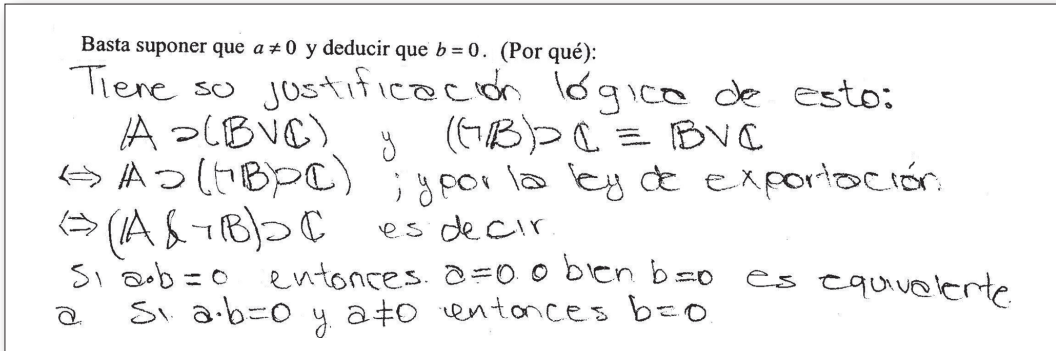 Basta suponer que a ≠ 0 y deducir que b = 0. (Por qué):
Tiene su justificación lógica de esto:
𝔸 ⊃ (𝔹 ∨ ℂ) y ((¬𝔹) ⊃ ℂ ≡ 𝔹 ∨ ℂ
⇔ 𝔸 ⊃ ((¬𝔹) ⊃ ℂ) ; y por la ley de exportación
⇔ (𝔸 & ¬𝔹) ⊃ ℂ es decir
Si a·b = 0 entonces a=0 o bien b=0 es equivalente
a Si a·b=0 y a≠0 entonces b=0